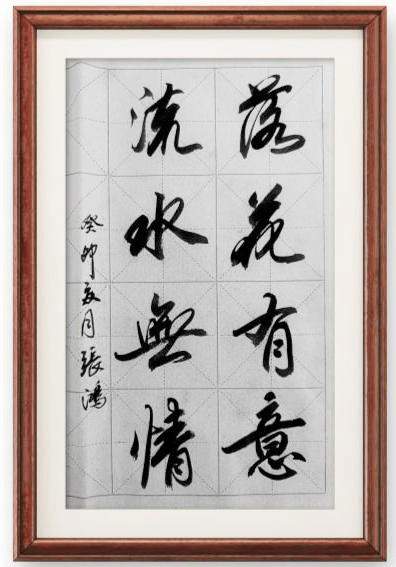 落花有意
流水無情
癸卯亥月張鴻